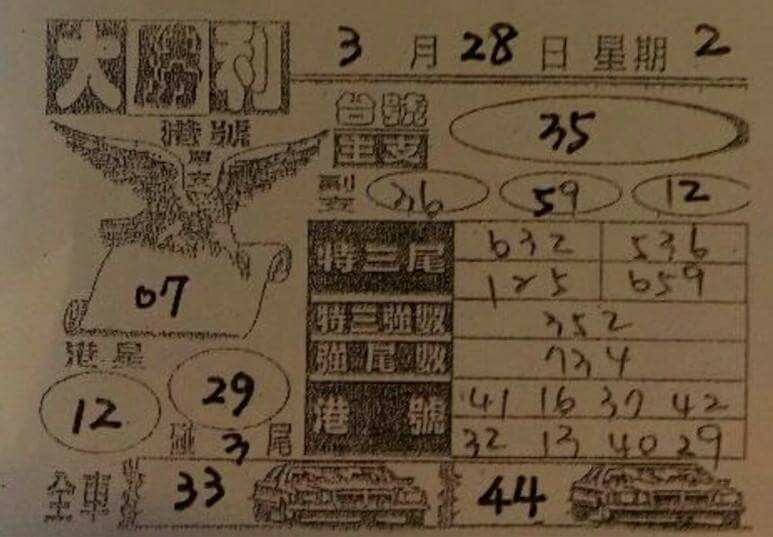 大勝利
3月28日星期2
港號
單支
07
台號
主支
35
副支
36 59 12
特三尾
632 536
125 659
特三強數
352
強尾數
734
港號
41 16 37 42
32 13 40 29
港星
12 29
碰3尾
全車 33 44